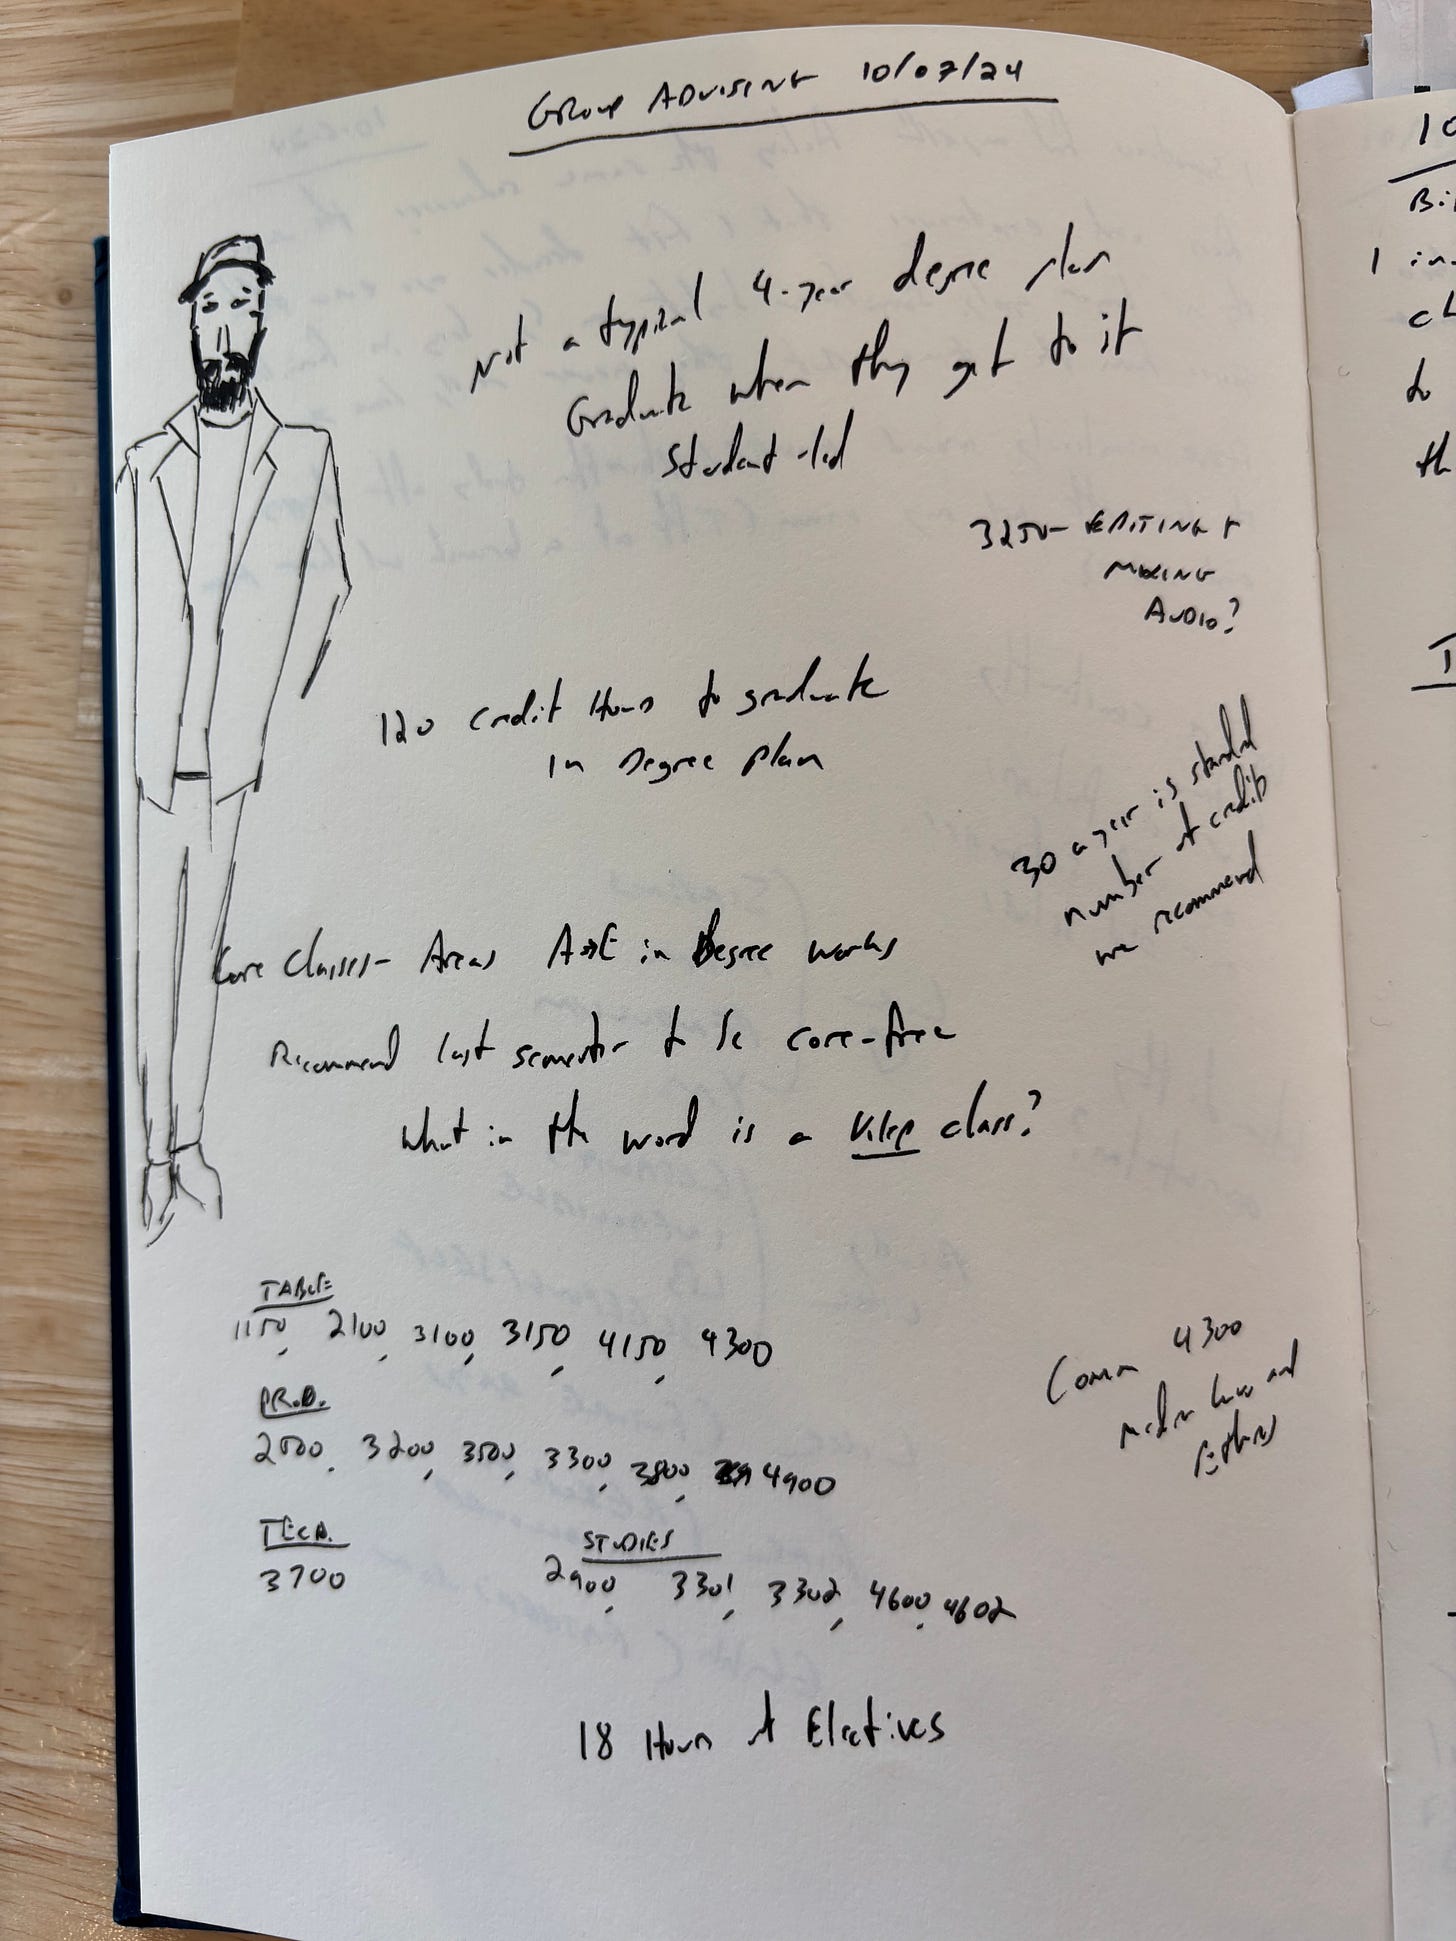 GROUP ADVISING 10/07/24
Not a typical 4-year degree plan
Graduate when they get to it
Student-led
3250- EDITING +
MIXING
AUDIO?
120 credit Hours to graduate
in Degree plan
30 a year is standard
number of credits
we recommend
Core Classes- Areas A→E in Degree works
Recommend last semester to be core-free
What in the word is a class?
TABLE
1150, 2100, 3100, 3150, 4150, 4300
PROD.
2500, 3200, 3500, 3300, 3800, 4900
Comm 4300
Media Law and
Ethics
TECH.
3700
STUDIES
2900, 3301, 3302, 4600, 4602
18 Hours of Electives
10
Bi
1 in
cl
to
th